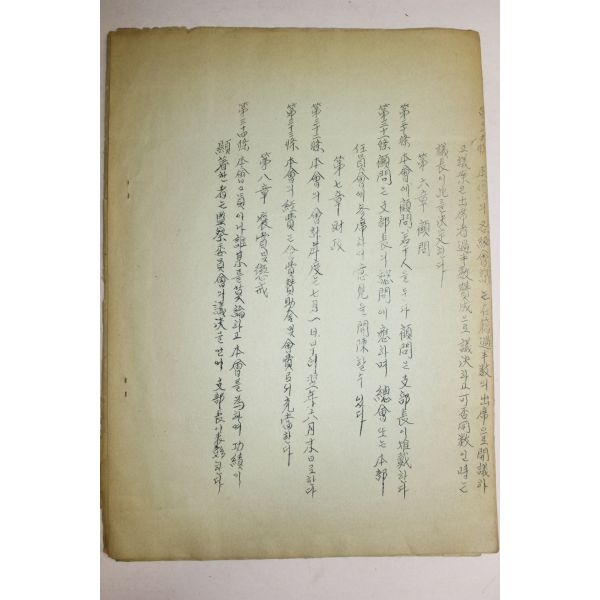 本會의 各級會議는 任員過半數의 出席으로 開議하
고 議案은 出席者過半數贊成으로 議決하고 可否同數인 時는
議長이 此를 決定한다
第六章 顧問
第三十條 本會에 顧問若干人을 두나 顧問은 支部長이 推戴한다
第三十一條 顧問은 支部長의 諮問에 應하며 總會 또는 本部
任員會에 參席하여 意見을 開陳할 수 있다
第七章 財政
第三十二條 本會의 會計年度는 七月一日부터 翌年六月末日로 한다
第三十三條 本會의 經費는 會費贊助金 및 으로 充當한다
第八章 褒賞 및 懲戒
第三十四條 本會會員이나 誰某를 莫論하고 本會를 為하여 功績이
顯著한 者는 監察委員會의 議決을 얻어 支部長이 表彰한다